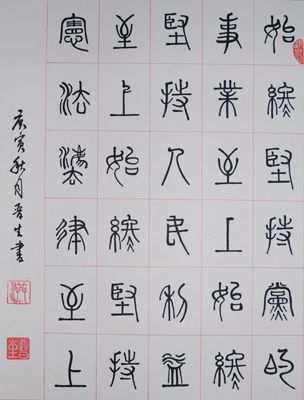 始終堅持黨的
事業至上始終
堅持人民利益
至上始終堅持
憲法灋律至上
庚寅秋月晉生書